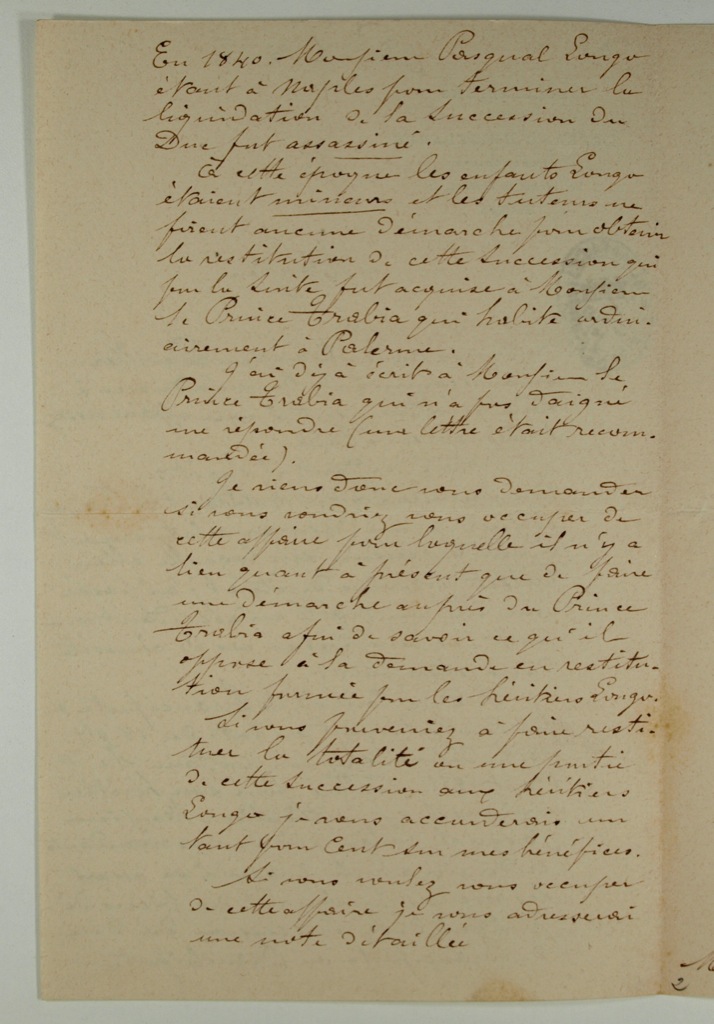 En 1840. Monsieur Pasqual Longo
étant à Naples pour terminer la
liquidation de la succession du
Duc fut assassiné.
à cette époque les enfants Longo
étaient mineurs et les tuteurs ne
firent aucune démarche pour obtenir
la restitution de cette succession qui
par la suite fut acquise à Monsieur
le Prince Trabia qui habite ordin-
airement à Palerme.
J'ai déjà écrit à Monsieur le
Prince Trabia qui n'a pas daigné
me répondre (une lettre était recom-
mandée).
Je viens donc vous demander
si vous voudriez vous occuper de
cette affaire pour laquelle il n'y a
lieu quant à présent que de faire
une démarche auprès du Prince
Trabia afin de savoir ce qu'il
oppose à la demande en restitu-
tion formée par les héritiers Longo.
Si vous parveniez à faire resti-
tuer la totalité ou une partie
de cette succession aux héritiers
Longo je vous accorderais un
tant pour Cent sur mes bénéfices.
Si vous voulez vous occuper
de cette affaire je vous adresserai
une note détaillée
2